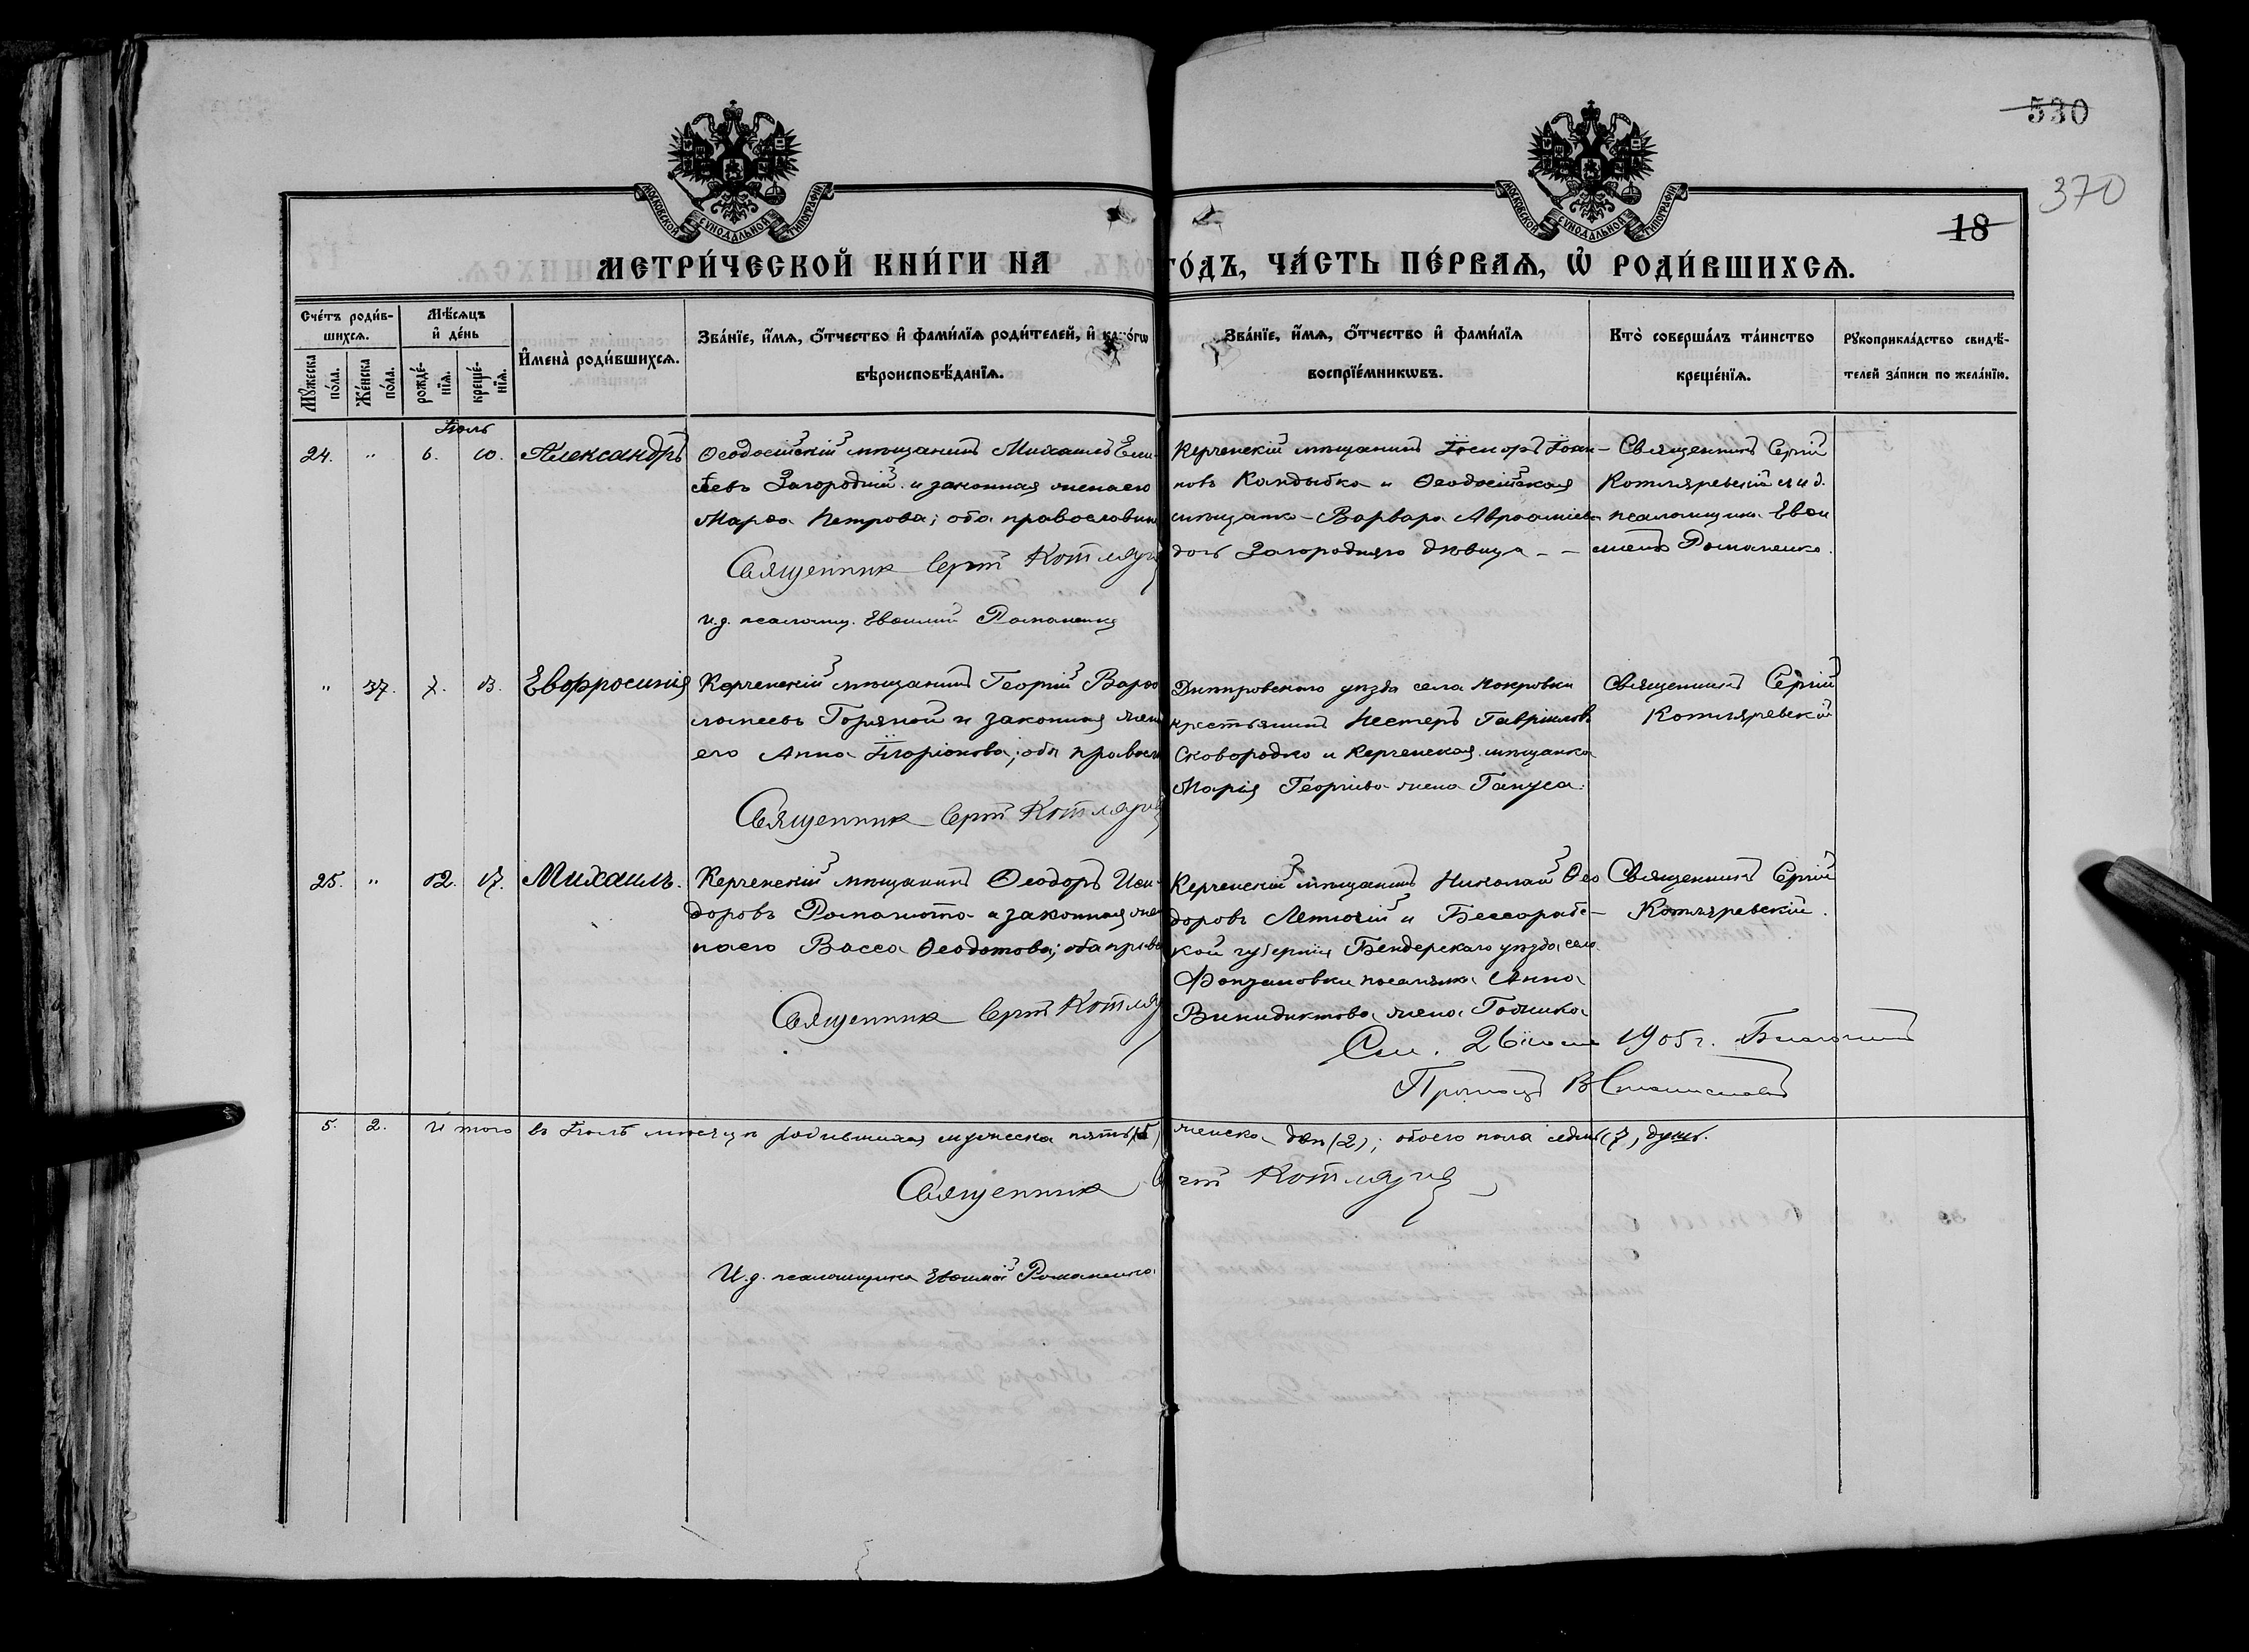 530
370
18
МОСКОВСКОЙ СѴНОДАЛЬНОЙ ТИПОГРАФІИ
МОСКОВСКОЙ СѴНОДАЛЬНОЙ ТИПОГРАФІИ
МЕТРИ́ЧЕСКОЙ КНИ́ГИ НА ГО́ДЪ, ЧА́СТЬ ПЕ́РВАѦ, Ѡ҆ РОДИ́ВШИХСѦ.
Сче́тъ роди́в-
шихсѧ.
Мꙋ́жеска по́ла.
Же́нска по́ла.
Мѣ́сѧцъ
и҆ де́нь
рожде́-нїѧ.
креще́-нїѧ.
И҆мена̀ роди́вшихсѧ.
Зва́нїе, и҆́мѧ, ѻ҆́тчество и҆ фами́лїѧ роди́телей, и҆ како́гѡ
вѣроисповѣ́данїѧ.
Зва́нїе, и҆́мѧ, ѻ҆́тчество и҆ фами́лїѧ
воспрїе́мникѡвъ.
Кто̀ соверша́лъ та́инство
креще́нїѧ.
Рꙋкоприкла́дство свидѣ́-
телей за́писи по жела́нїю.
Іюль
24. " 6. 10. Александръ
Ѳеодосійскій мѣщанинъ Михаилъ Ели-
сѣевъ Загородній и законная жена его
Марѳа Петрова; оба православн
Священник Сергій Котляре
И.д. псаломщ. Евѳимій Романенко
Керченскій мѣщанинъ Іоан-
новъ Кандыбка и Ѳеодосійская
мѣщанка Варвара Аврааміева
дочь Загородняго дѣвица
Священникъ Сергій
Котляревскій и и.д.
псаломщика Евѳи
мій Романенко.
" 37. 7. 13. Евфросинія
Керченскій мѣщанинъ Георгій Варѳо
ломеевъ Горяной и законная жен
его Анна Иларіонова; оба правосл
Священник Сергій Котляре
Днѣпровскаго уѣзда села Покровки
крестьянинъ Нестеръ Гавріиловъ
Сковородко и Керченская мѣщанка
Марія Георгіева жена Гануса.
Священникъ Сергій
Котляревскій
25. " 12. 17. Михаилъ.
Керченскій мѣщанинъ Ѳеодоръ Иси-
доровъ Романюта и законная же
на его Васса Ѳеодотова; оба право
Священник Сергій Котляр
Керченскій мѣщанинъ Николай Ѳео
доровъ Летючій и Бессарабс-
кой губерніи Бендерскаго уѣзда села
поселянка Анна
Винидиктова жена
Священникъ Сергій
Котляревскій.
См. 26 1905 г. Благочин
5. 2. Итого въ Іюлѣ мѣсяцѣ родившихся мужеска пять (5), женска двѣ (2); обоего пола седмь (7) душъ.
Священник Сергій Котляре
И.д. псаломщика Евѳимій Романенко